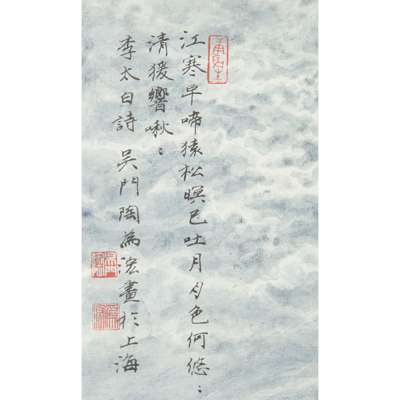 江寒早啼猿松暝已吐月月色何悠:
清猨響啾:
李太白詩 吴門陶為浤畫於上海